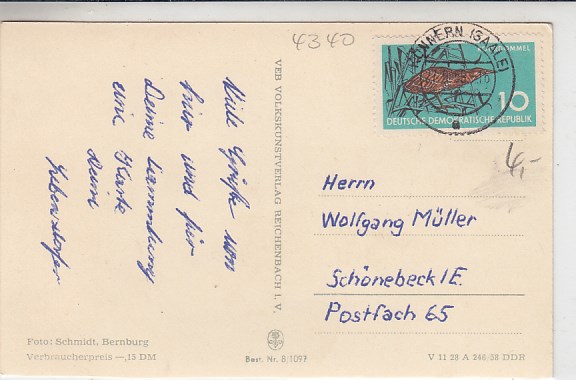 4340
Viele Grüße von
hier und für
Deine Sammlung
eine Karte
Dein
VEB VOLKSKUNSTVERLAG REICHENBACH I. V.
KÖNNERN (SAALE)
DOMMEL
10
DEUTSCHE DEMOKRATISCHE REPUBLIK
4,-
Herrn
Wolfgang Müller
Schönebeck/E.
Postfach 65
Foto: Schmidt, Bernburg
Verbraucherpreis —,15 DM
Best. Nr. 8/1097
V 11 28 A 246/58 DDR